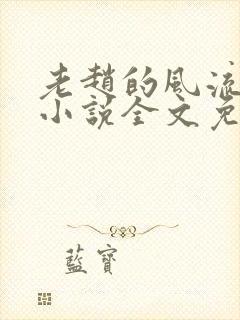 老趙的風流
小說全文免
藍寶